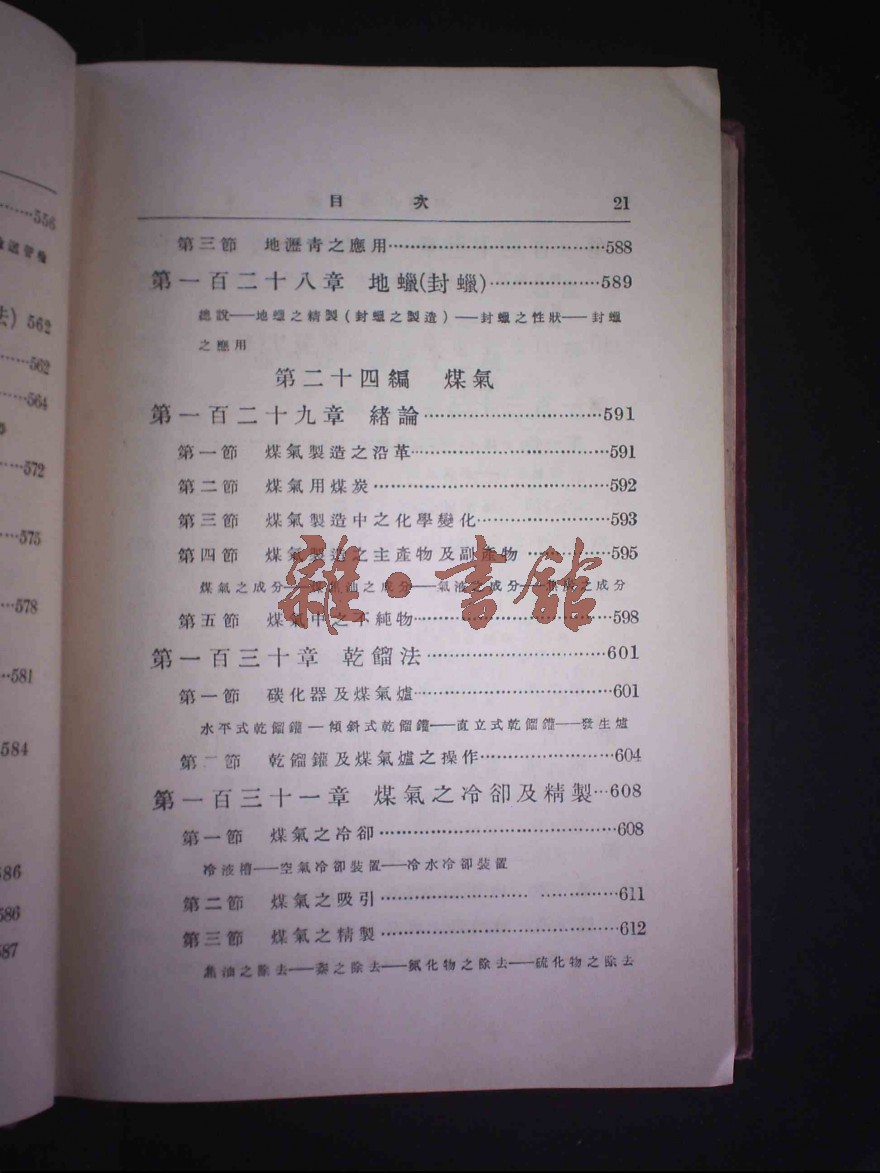 目 次 21
第三節 地瀝青之應用……588
第一百二十八章 地蠟(封蠟)……589
總說——地蠟之精製(封蠟之製造)——封蠟之性狀——封蠟
之應用
第二十四編 煤氣
第一百二十九章 緒論……591
第一節 煤氣製造之沿革……591
第二節 煤氣用煤炭……592
第三節 煤氣製造中之化學變化……593
第四節 煤氣製造之主產物及副產物……595
煤氣之成分——油之成分——氣液之成分——之成分
第五節 煤氣中之不純物……598
第一百三十章 乾餾法……601
第一節 碳化器及煤氣爐……601
水平式乾餾鑵——傾斜式乾餾鑵——直立式乾餾鑵——發生爐
第二節 乾餾鑵及煤氣爐之操作……604
第一百三十一章 煤氣之冷卻及精製…608
第一節 煤氣之冷卻……608
冷液槽——空氣冷卻裝置——冷水冷卻裝置
第二節 煤氣之吸引……611
第三節 煤氣之精製……612
焦油之除去——之除去——氮化物之除去——硫化物之除去
雜·書館
……556
法) 562
……562
……564
……572
……575
……578
……581
584
586
586
587